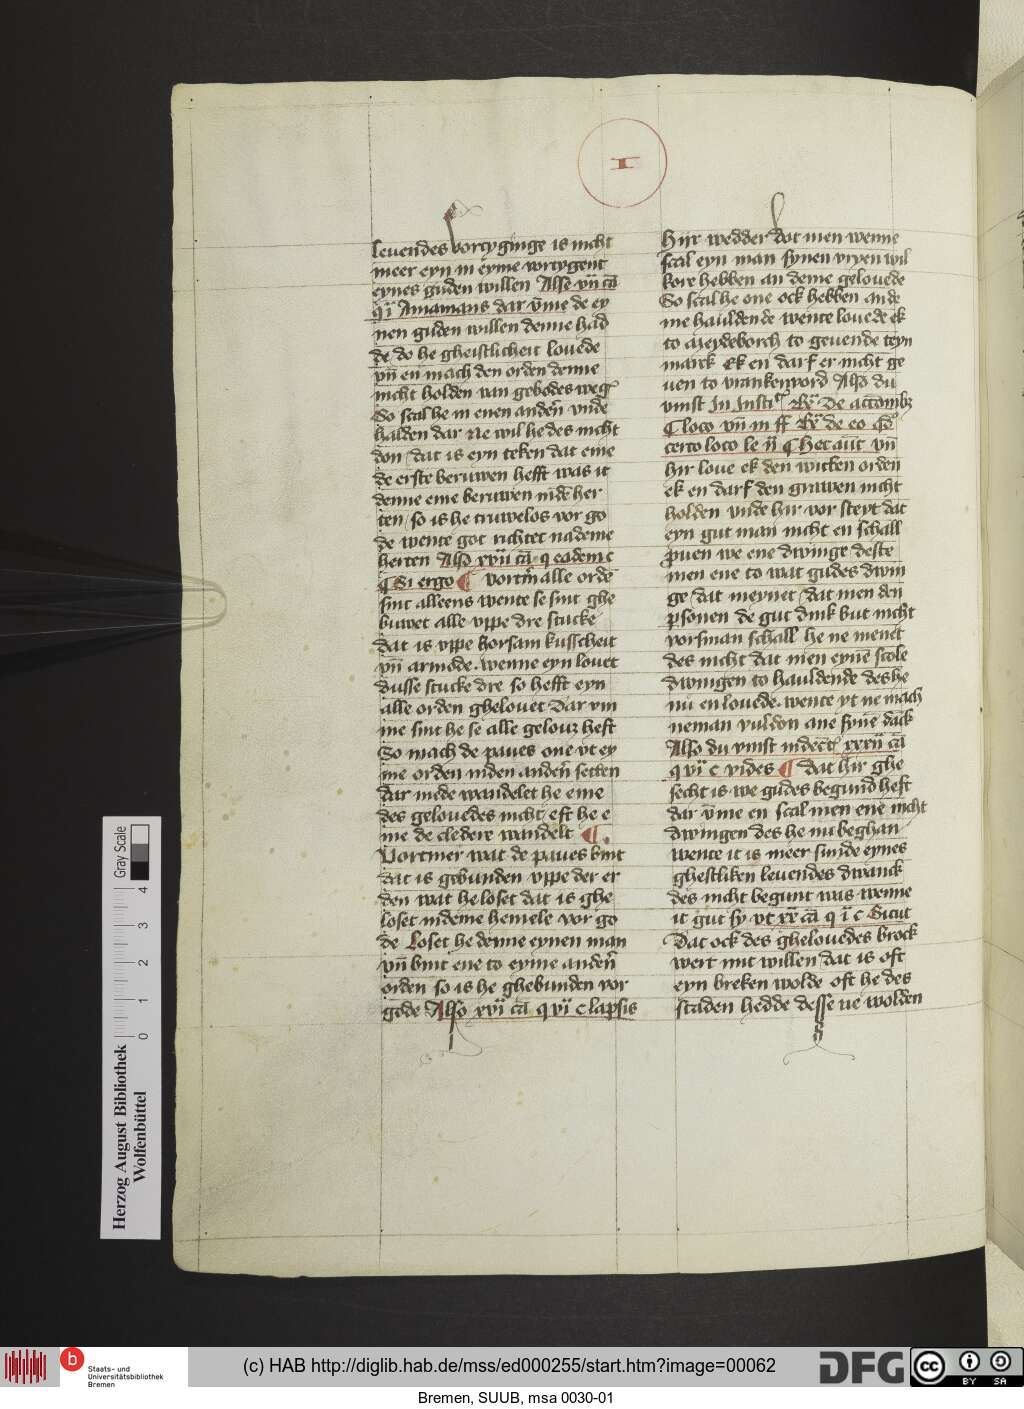 I
leuendes vortyginge is nicht
meer eyn in eyme vortygent
eynes guden willen Alse vn̄ cā
q̄ ī Amamans dar v̄me de ey
nen guden willen denne had
de do he gheistlicheit louede
vn̄ en mach den orden denne
nicht holden van gebodes weg
So scal he in enen anden̄ vnde
halden dar Ne wil he des nicht
don / dat is eyn teken dat eme
de erste beruwen hefft was it
denne eme beruwen in dē her
ten / so is he truwelos vor go
de wente got richtet na deme
herten Also xvii cā q eadem c
¶ Si ergo ¶ vortm̄ alle ordē
sint alleens wente se sint ghe
buwet alle vppe dre stucke
dat is vppe horsam kusscheit
vn̄ armode . wenne eyn louet
dusse stucke dre so hefft eyn
alle orden ghelouet Dar vm
me sint he se alle gelouȝ heft
So mach de paues one vt ey
me orden in den anden̄ setten
dar mede wandelet he eme
des gelouedes nicht / eft he e
me de cledere wandelt ¶
Vortmer wat de paues bint
dat is gebunden vppe der er
den wat he loset dat is ghe
loset in deme hemele vor go
de Loset he denne eynen man
vn̄ bint ene to eyme anden̄
orden so is he ghebunden vor
gode Also xvi cā q vi c lapsis
Hiir wedder dot men wenne
scal eyn man synen vryen wil
kore hebben an deme gelouede
So scal he one ock hebben an de
me hauldende wente louede ek
to Meydeborch to geuende teyn
marck Ek en darf er nicht ge
uen to vrankenvord Also du
vinst In Insti Rͣ De actionibȝ
¶ loco vn̄ in ff Rͣ de eo qđ
certo loco le ii ¶ Hec aūt vn̄
hir loue ek den witten orden
ek en darf den grawen nicht
holden vnde hir vor steyt dat
eyn gut man nicht en schall
p̄uen we ene dwinge deste
men ene to wat gudes dwin
ge / dat meynet / dat men den
p̄sonen de gut dink but nicht
vorsman schall he ne menet
des nicht dat men eynē scole
dwingen to hauldende des he
nu en louede . wente yt ne mach
neman vuldon ane synē dāck
Also du vinst in decͬ xxxii cā
q vi c vides ¶ Dat hir ghe
secht is we gudes begund heft
dar v̄me en scal men ene nicht
dwingen des he nu beghan
wente it is meer sunde eynes
ghestliken leuendes dwanck
des nicht begunt was wenne
it gut sy vt xx cā q ī c Sicut
Dat ock des ghelouedes brock
wert mit willen dat is oft
eyn breken wolde oft he des
staden hedde desse ne wolden
Gray Scale
4
3
2
1
0
Herzog August Bibliothek
Wolfenbüttel
b
Staats- und
Universitätsbibliothek
Bremen
(c) HAB http://diglib.hab.de/mss/ed000255/start.htm?image=00062
DFG
cc
BY SA
Bremen, SUUB, msa 0030-01